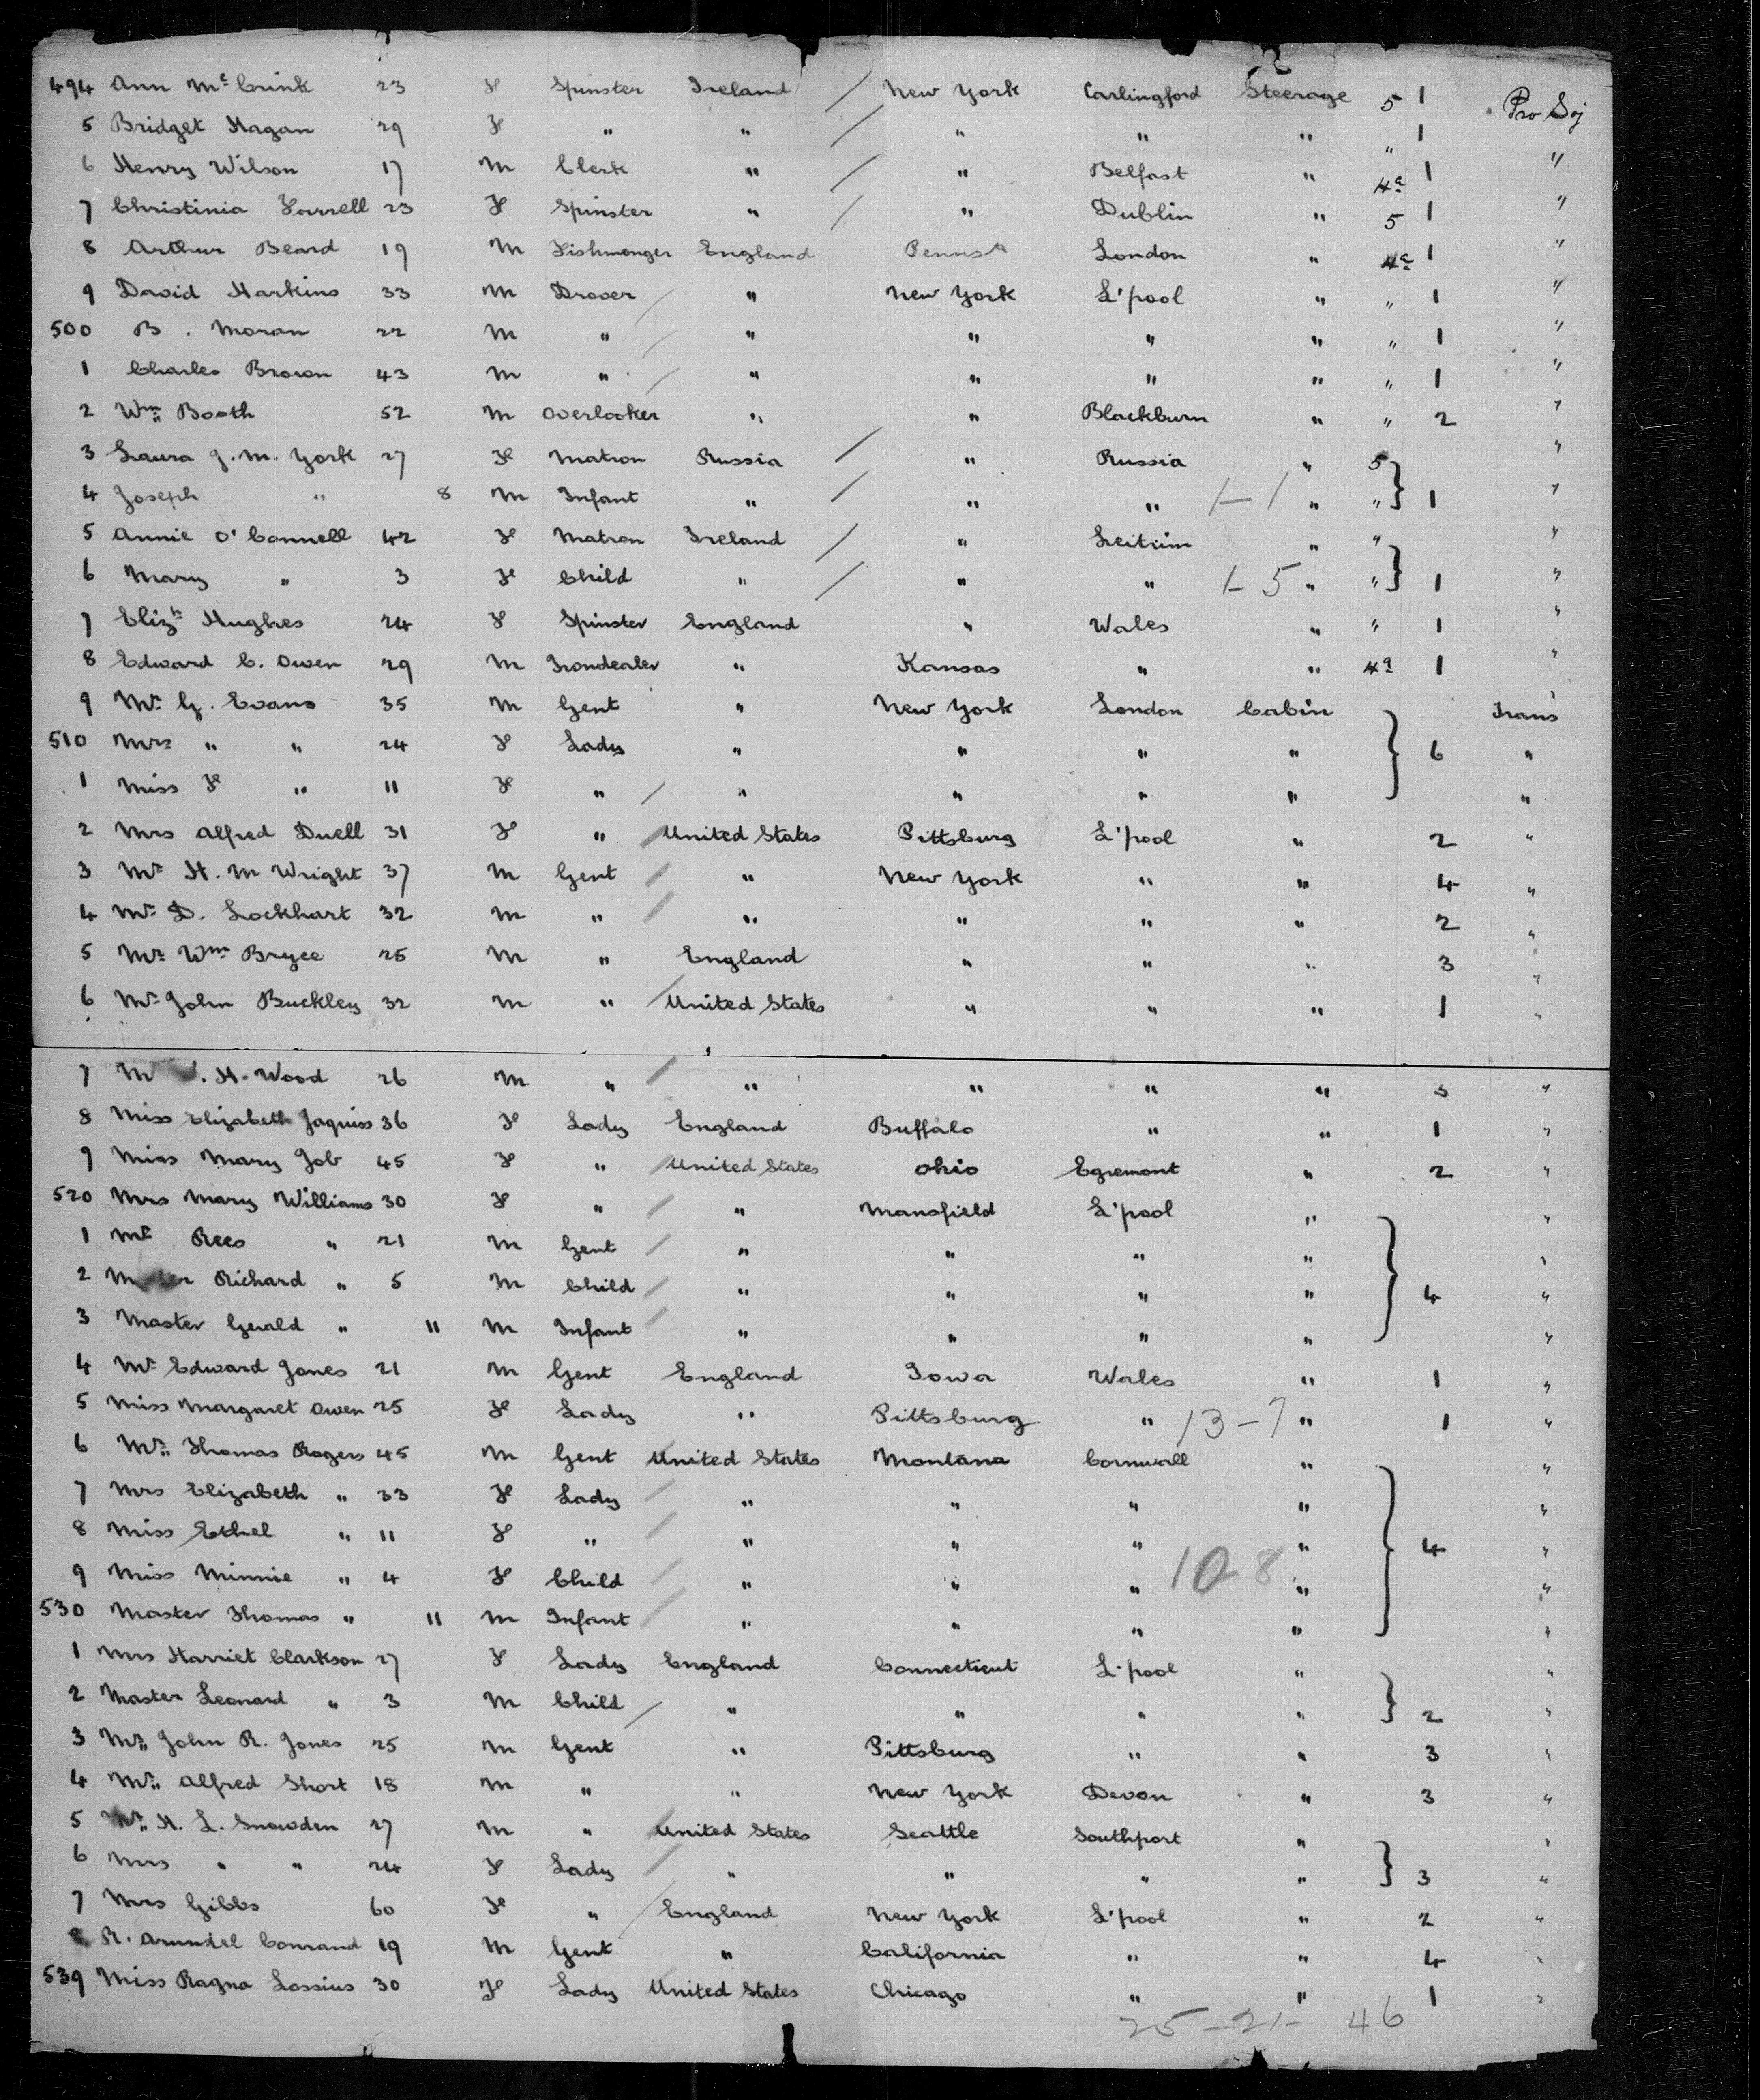 494 Ann McCrink 23 F Spinster Ireland / New York Carlingford Steerage 5 1 Pro Soj
5 Bridget Hagan 29 F " " / " " " " 1 "
6 Henry Wilson 17 M Clerk " / " Belfast " 4a 1 "
7 Christinia Farrell 23 F Spinster " / " Dublin " 5 1 "
8 Arthur Beard 19 M Fishmonger England Penns London " 4a 1 "
9 David Harkins 33 M Drover / " New York L'pool " " 1 "
500 B. Moran 22 M " / " " " " " 1 "
1 Charles Brown 43 M " / " " " " " 1 "
2 Wm Booth 52 M Overlooker " " Blackburn " " 2 "
3 Laura J. M. York 27 F Matron Russia / " Russia " 5 "
4 Joseph " 8 M Infant " / " " 1-1 " " } 1 "
5 Annie O'Connell 42 F Matron Ireland / " Leitrim " " "
6 Mary " 3 F Child " / " " 1-5 " " } 1 "
7 Elizh Hughes 24 F Spinster England " Wales " " 1 "
8 Edward C. Owen 29 M Irondealer " Kansas " " 4a 1 "
9 Mr G. Evans 35 M Gent " New York London Cabin Trans
510 Mrs " " 24 F Lady " " " " } 6 "
1 Miss F " 11 F " / " " " " "
2 Mrs Alfred Duell 31 F " / United States Pittsburg L'pool " 2 "
3 Mr H. M Wright 37 M Gent / " New York " " 4 "
4 Mr D. Lockhart 32 M " / " " " " 2 "
5 Mr Wm Bryce 25 M " England " " " 3 "
6 Mr John Buckley 32 M " / United States " " " 1 "
7 M . H. Wood 26 M " / " " " " 3 "
8 Miss Elizabeth Jaquiss 36 F Lady England Buffalo " " 1 "
9 Miss Mary Job 45 F " / United States Ohio Egremont " 2 "
520 Mrs Mary Williams 30 F " / " Mansfield L'pool " "
1 Mr Rees " 21 M Gent / " " " " "
2 Master Richard " 5 M Child / " " " " } 4 "
3 Master Gerald " 11 M Infant / " " " " "
4 Mr Edward Jones 21 M Gent England Iowa Wales " 1 "
5 Miss Margaret Owen 25 F Lady " Pittsburg " 13-7 " 1 "
6 Mr Thomas Rogers 45 M Gent United States Montana Cornwall " "
7 Mrs Elizabeth " 33 F Lady / " " " " "
8 Miss Ethel " 11 F " / " " " " } 4 "
9 Miss Minnie " 4 F Child / " " " 10 8 " "
530 Master Thomas " 11 M Infant / " " " " "
1 Mrs Harriet Clarkson 27 F Lady England Connecticut L'pool " "
2 Master Leonard " 3 M Child / " " " " } 2 "
3 Mr John R. Jones 25 M Gent " Pittsburg " " 3 "
4 Mr Alfred Short 18 M " " New York Devon " 3 "
5 Mr H. L. Snowden 27 M " United States Seattle Southport " "
6 Mrs " " 24 F Lady / " " " " } 3 "
7 Mrs Gibbs 60 F " / England New York L'pool " 2 "
8 R. Arundel Conrand 19 M Gent " California " " 4 "
539 Miss Ragna Lossius 30 F Lady United States Chicago " " 1 "
25-21- 46